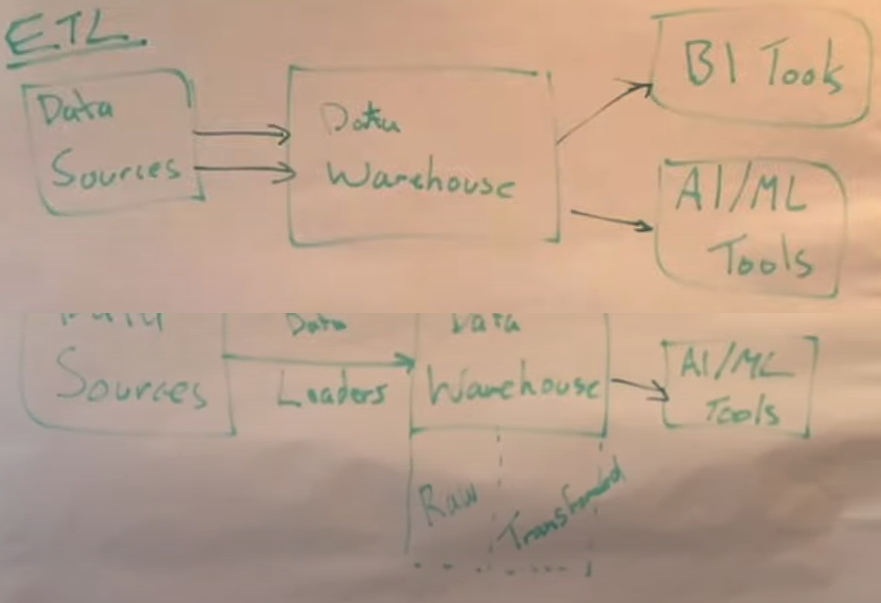 ETL
Data
Sources
Data
Warehouse
BI Tools
AI/ML
Tools
Data
Sources
Data
Loaders
Data
Warehouse
AI/ML
Tools
Raw
Transformed